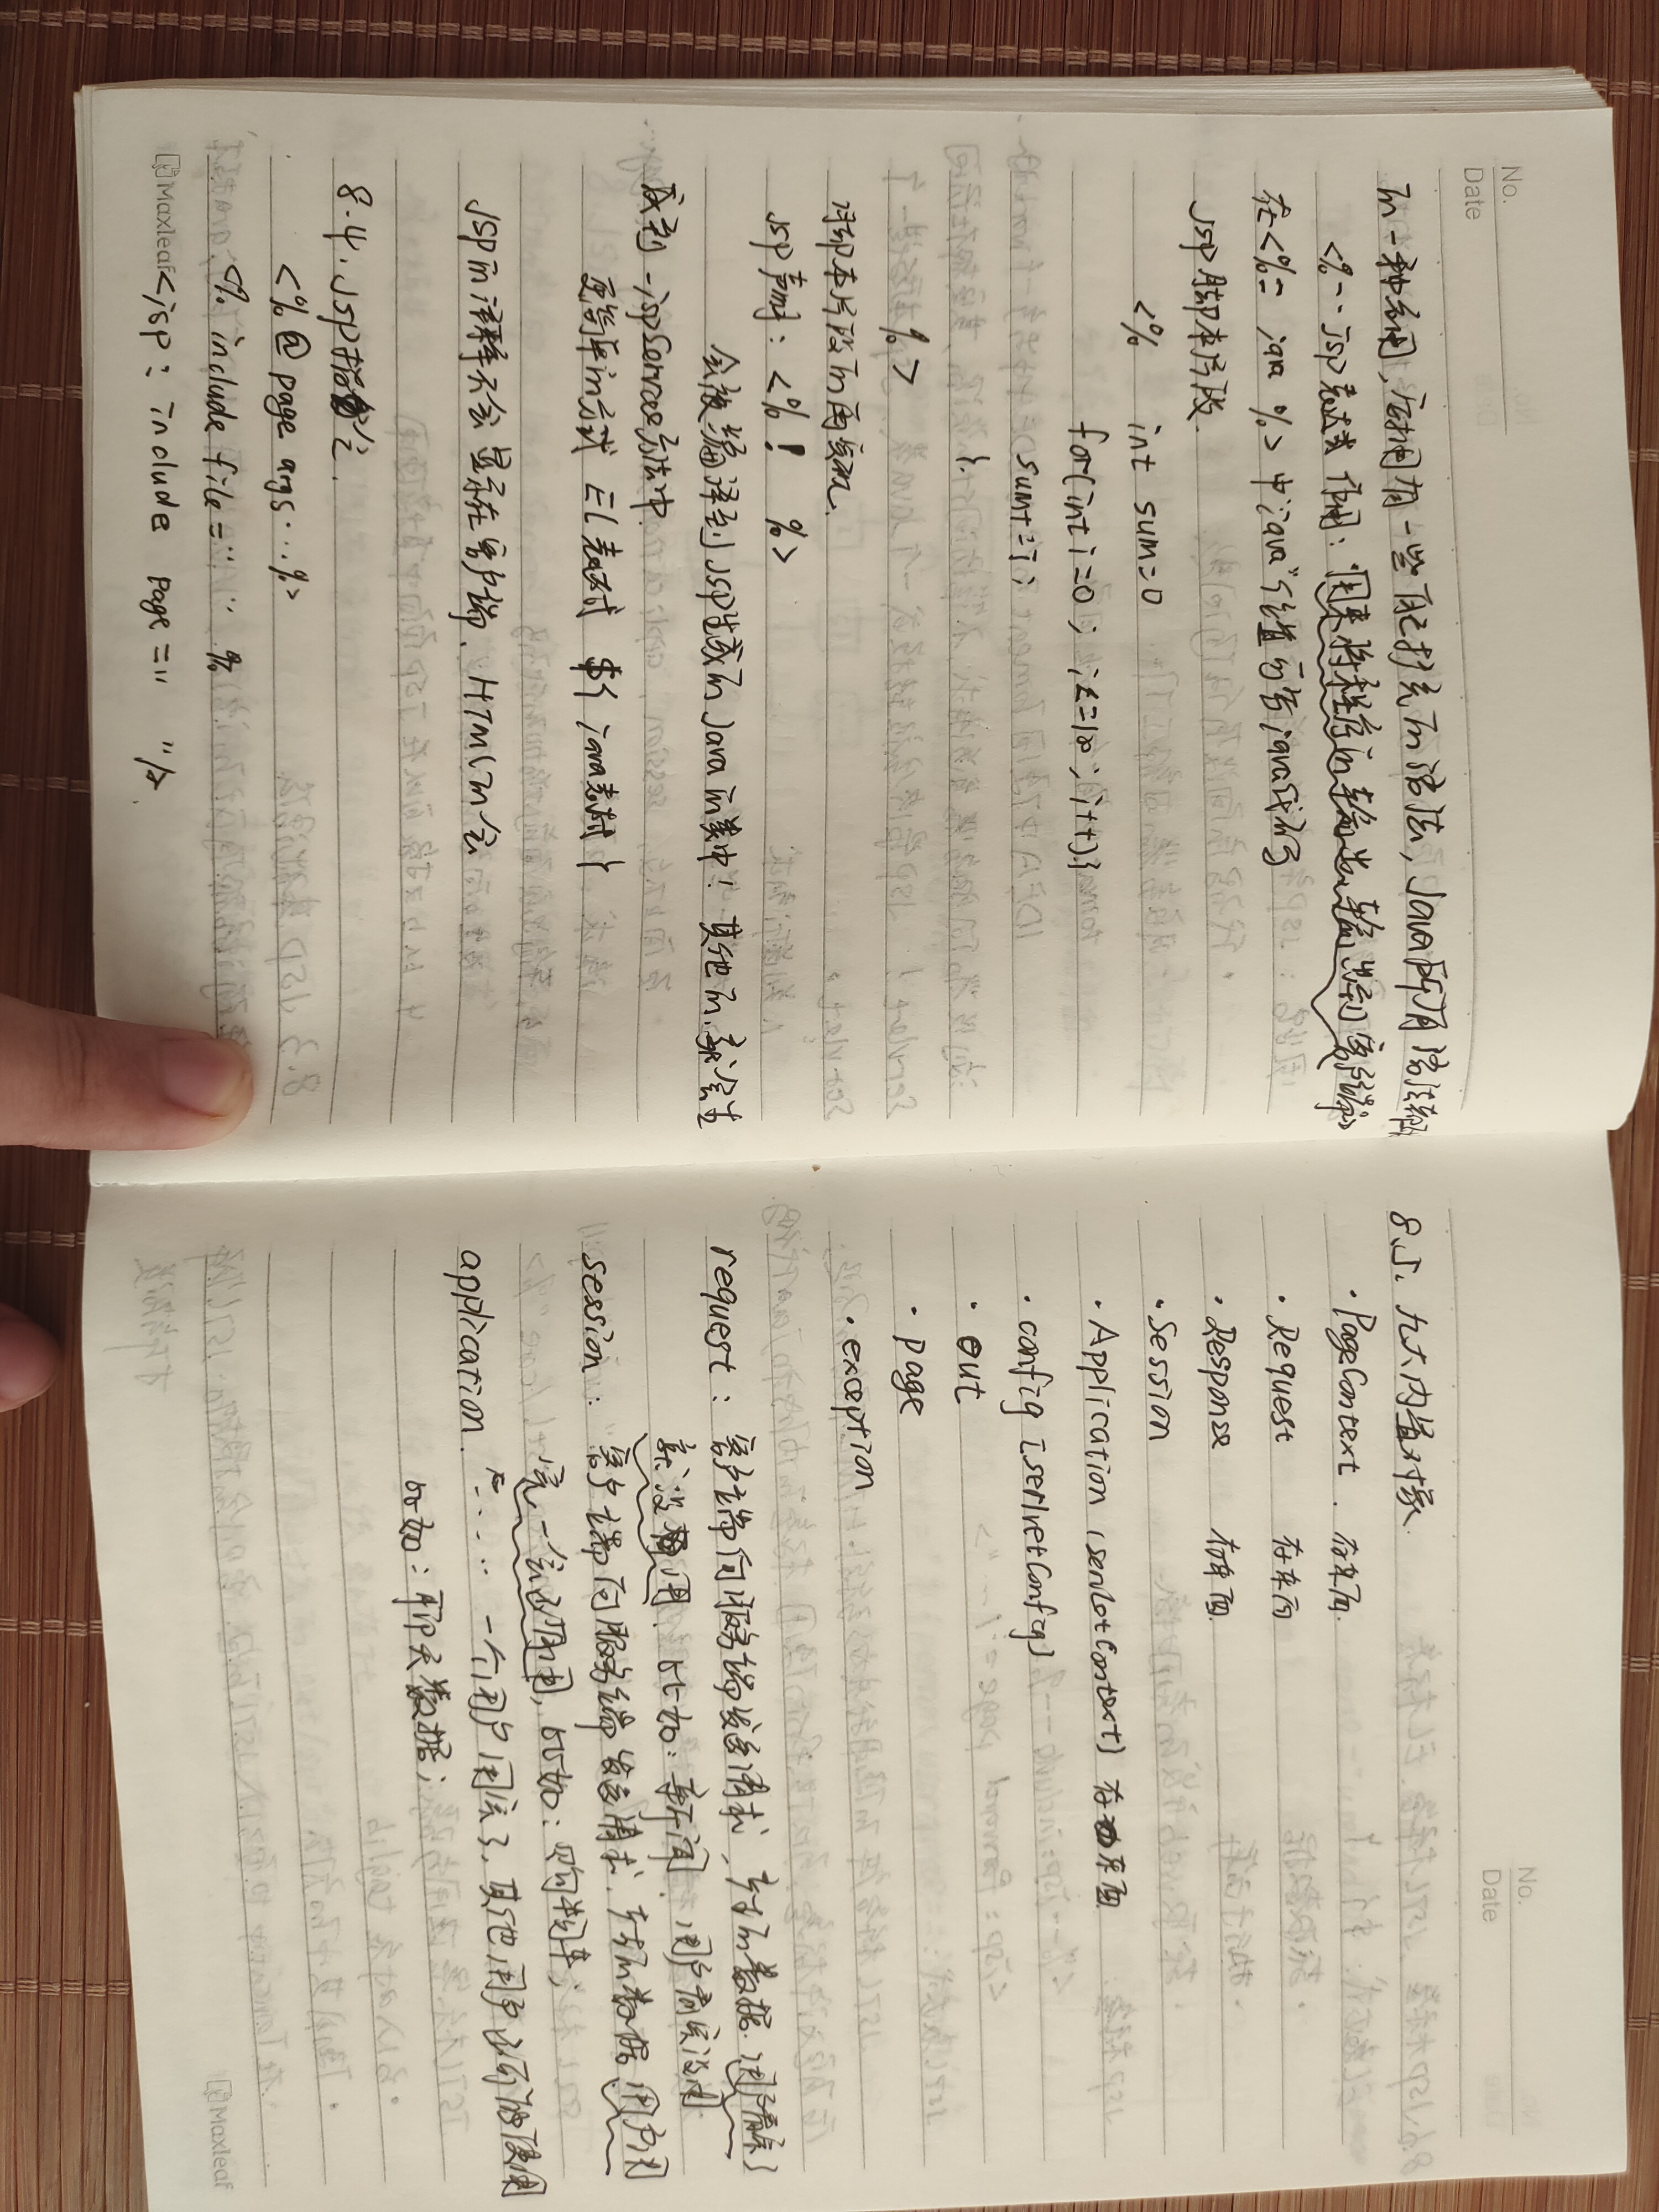 No.
Date
的一种应用,应用有一些自己扩充的语法,Java所有语法都
<%-- jsp表达式 作用:用来将程序的输出,输出到客户端
在<%= java %>中java"变量或者java代码
jsp脚本片段.
<% int sum=0
for(int i=0; i<=100; i++){
sum+=i;
}
%>
脚本片段的再实现.
jsp声明: <%! %>
会被编译到jsp生成的Java的类中! 其他的.就会生
成到_jspService方法中.
更简单的方式 EL表达式 ${ java表达式 }
JSP的注释不会显示在客户端、HTML的会
8.4. Jsp指令.
<%@page args...%>
<% include file="" %
<jsp: include page="" />
Maxleaf
No.
Date
8.5. 九大内置对象.
· PageContext. 存东西.
· Request 存东西
· Response 存东西
· Session
· Application (servletContext) 存东西
· config [servletConfig]
· out
· page
· exception
request: 客户端向服务端发送请求,产生的数据.用户看完了
就没用. 比如:新闻.用户看完没用.
session: 客户端向服务端发送请求.产生的数据,用户用
完一会还有用,比如:购物车;
application. "....." 一个用户用完了,其他用户还可能使用
比如:聊天数据;
Maxleaf